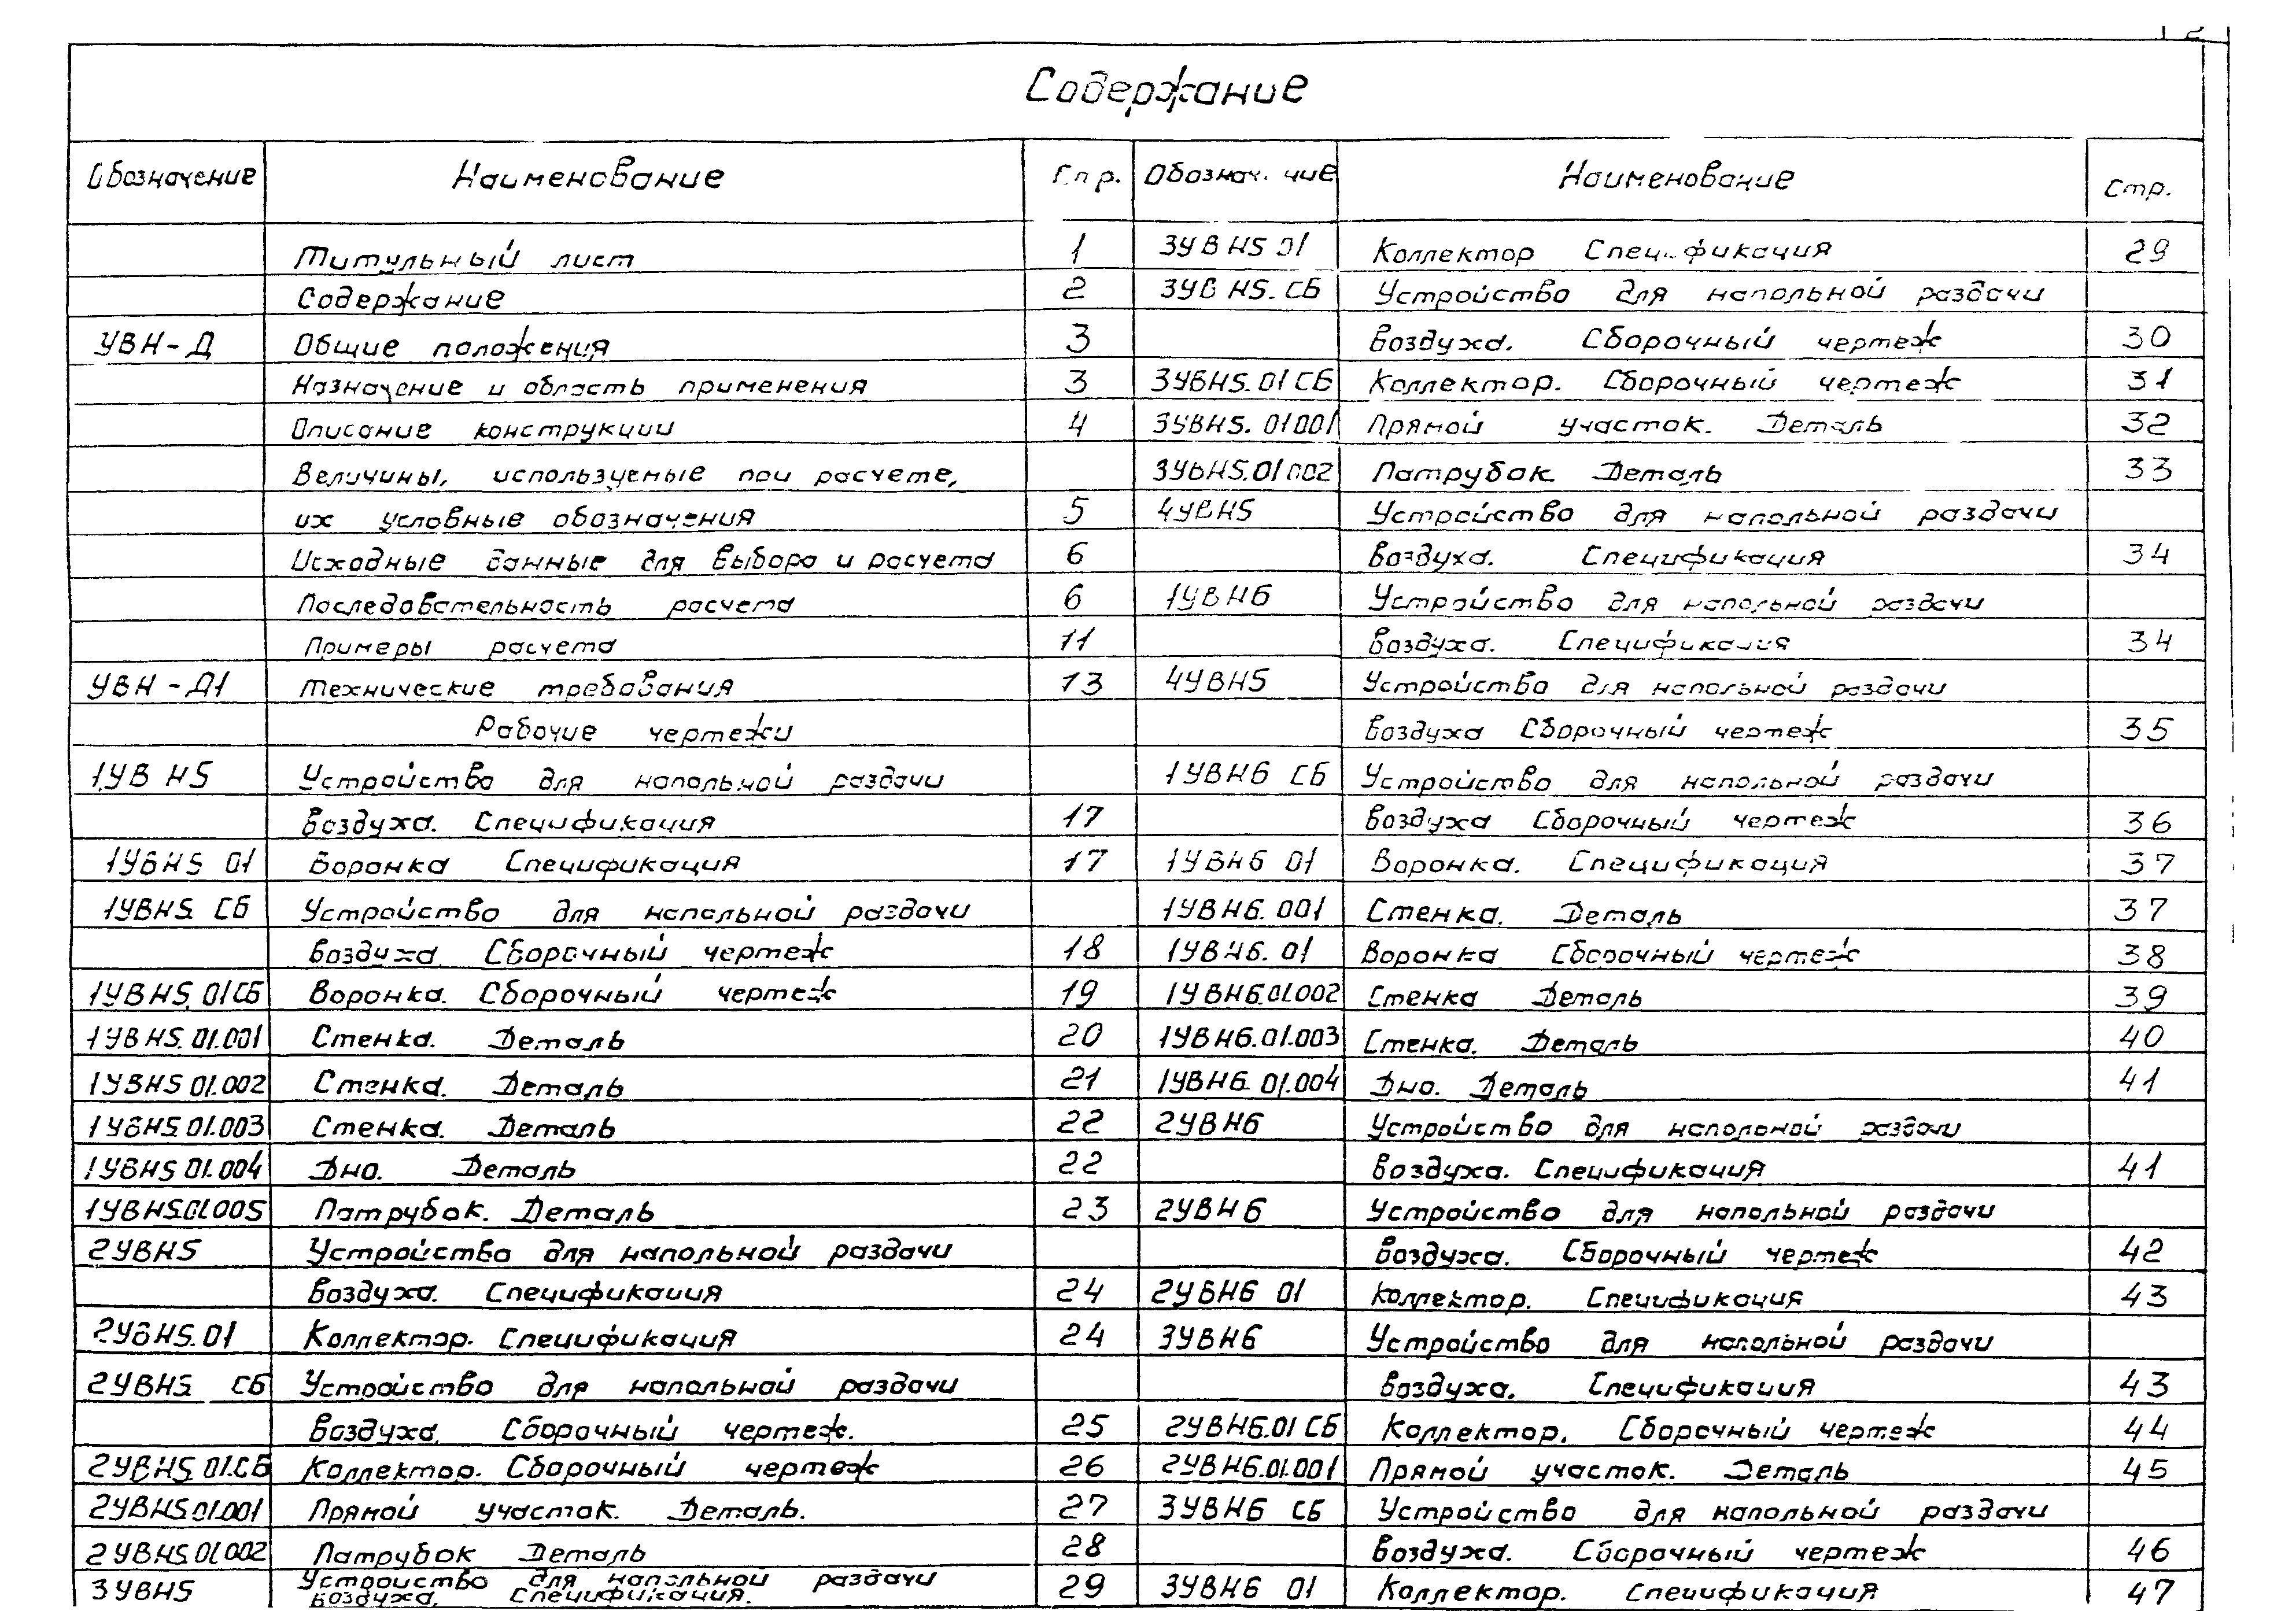 2
Содержание
Обозначение Наименование Стр. Обозначение Наименование Стр.
Титульный лист 1
Содержание 2
УВН-Д Общие положения 3
Назначение и область применения 3
Описание конструкции 4
Величины, используемые при расчете,
их условные обозначения 5
Исходные данные для выбора и расчета 6
Последовательность расчета 6
Примеры расчета 11
УВН-Д1 Технические требования 13
Рабочие чертежи
1УВН5 Устройство для напольной раздачи
воздуха. Спецификация 17
1УВН5 01 Воронка Спецификация 17
1УВН5 СБ Устройство для напольной раздачи
воздуха. Сборочный чертеж 18
1УВН5.01СБ Воронка. Сборочный чертеж 19
1УВН5.01.001 Стенка. Деталь 20
1УВН5 01.002 Стенка. Деталь 21
1УВН5.01.003 Стенка. Деталь 22
1УВН5 01.004 Дно. Деталь 22
1УВН5.01.005 Патрубок. Деталь 23
2УВН5 Устройство для напольной раздачи
воздуха. Спецификация 24
2УВН5.01 Коллектор. Спецификация 24
2УВН5 СБ Устройство для напольной раздачи
воздуха. Сборочный чертеж. 25
2УВН5 01.СБ Коллектор. Сборочный чертеж 26
2УВН5.01.001 Прямой участок. Деталь. 27
2УВН5.01.002 Патрубок Деталь 28
3УВН5 Устройство для напольной раздачи
воздуха. Спецификация. 29
3УВН5 01 Коллектор Спецификация 29
3УВН5.СБ Устройство для напольной раздачи
воздуха. Сборочный чертеж 30
3УВН5.01СБ Коллектор. Сборочный чертеж 31
3УВН5.01001 Прямой участок. Деталь 32
3УВН5.01.002 Патрубок. Деталь 33
4УВН5 Устройство для напольной раздачи
воздуха. Спецификация 34
1УВН6 Устройство для напольной раздачи
воздуха. Спецификация 34
4УВН5 Устройство для напольной раздачи
воздуха Сборочный чертеж 35
1УВН6 СБ Устройство для напольной раздачи
воздуха Сборочный чертеж 36
1УВН6 01 Воронка. Спецификация 37
1УВН6.001 Стенка. Деталь 37
1УВН6.01 Воронка Сборочный чертеж 38
1УВН6.01.002 Стенка Деталь 39
1УВН6.01.003 Стенка. Деталь 40
1УВН6 01.004 Дно. Деталь 41
2УВН6 Устройство для напольной раздачи
воздуха. Спецификация 41
2УВН6 Устройство для напольной раздачи
воздуха. Сборочный чертеж 42
2УВН6 01 Коллектор. Спецификация 43
3УВН6 Устройство для напольной раздачи
воздуха. Спецификация 43
2УВН6.01 СБ Коллектор. Сборочный чертеж 44
2УВН6.01.001 Прямой участок. Деталь 45
3УВН6 СБ Устройство для напольной раздачи
воздуха. Сборочный чертеж 46
3УВН6 01 Коллектор. Спецификация 47